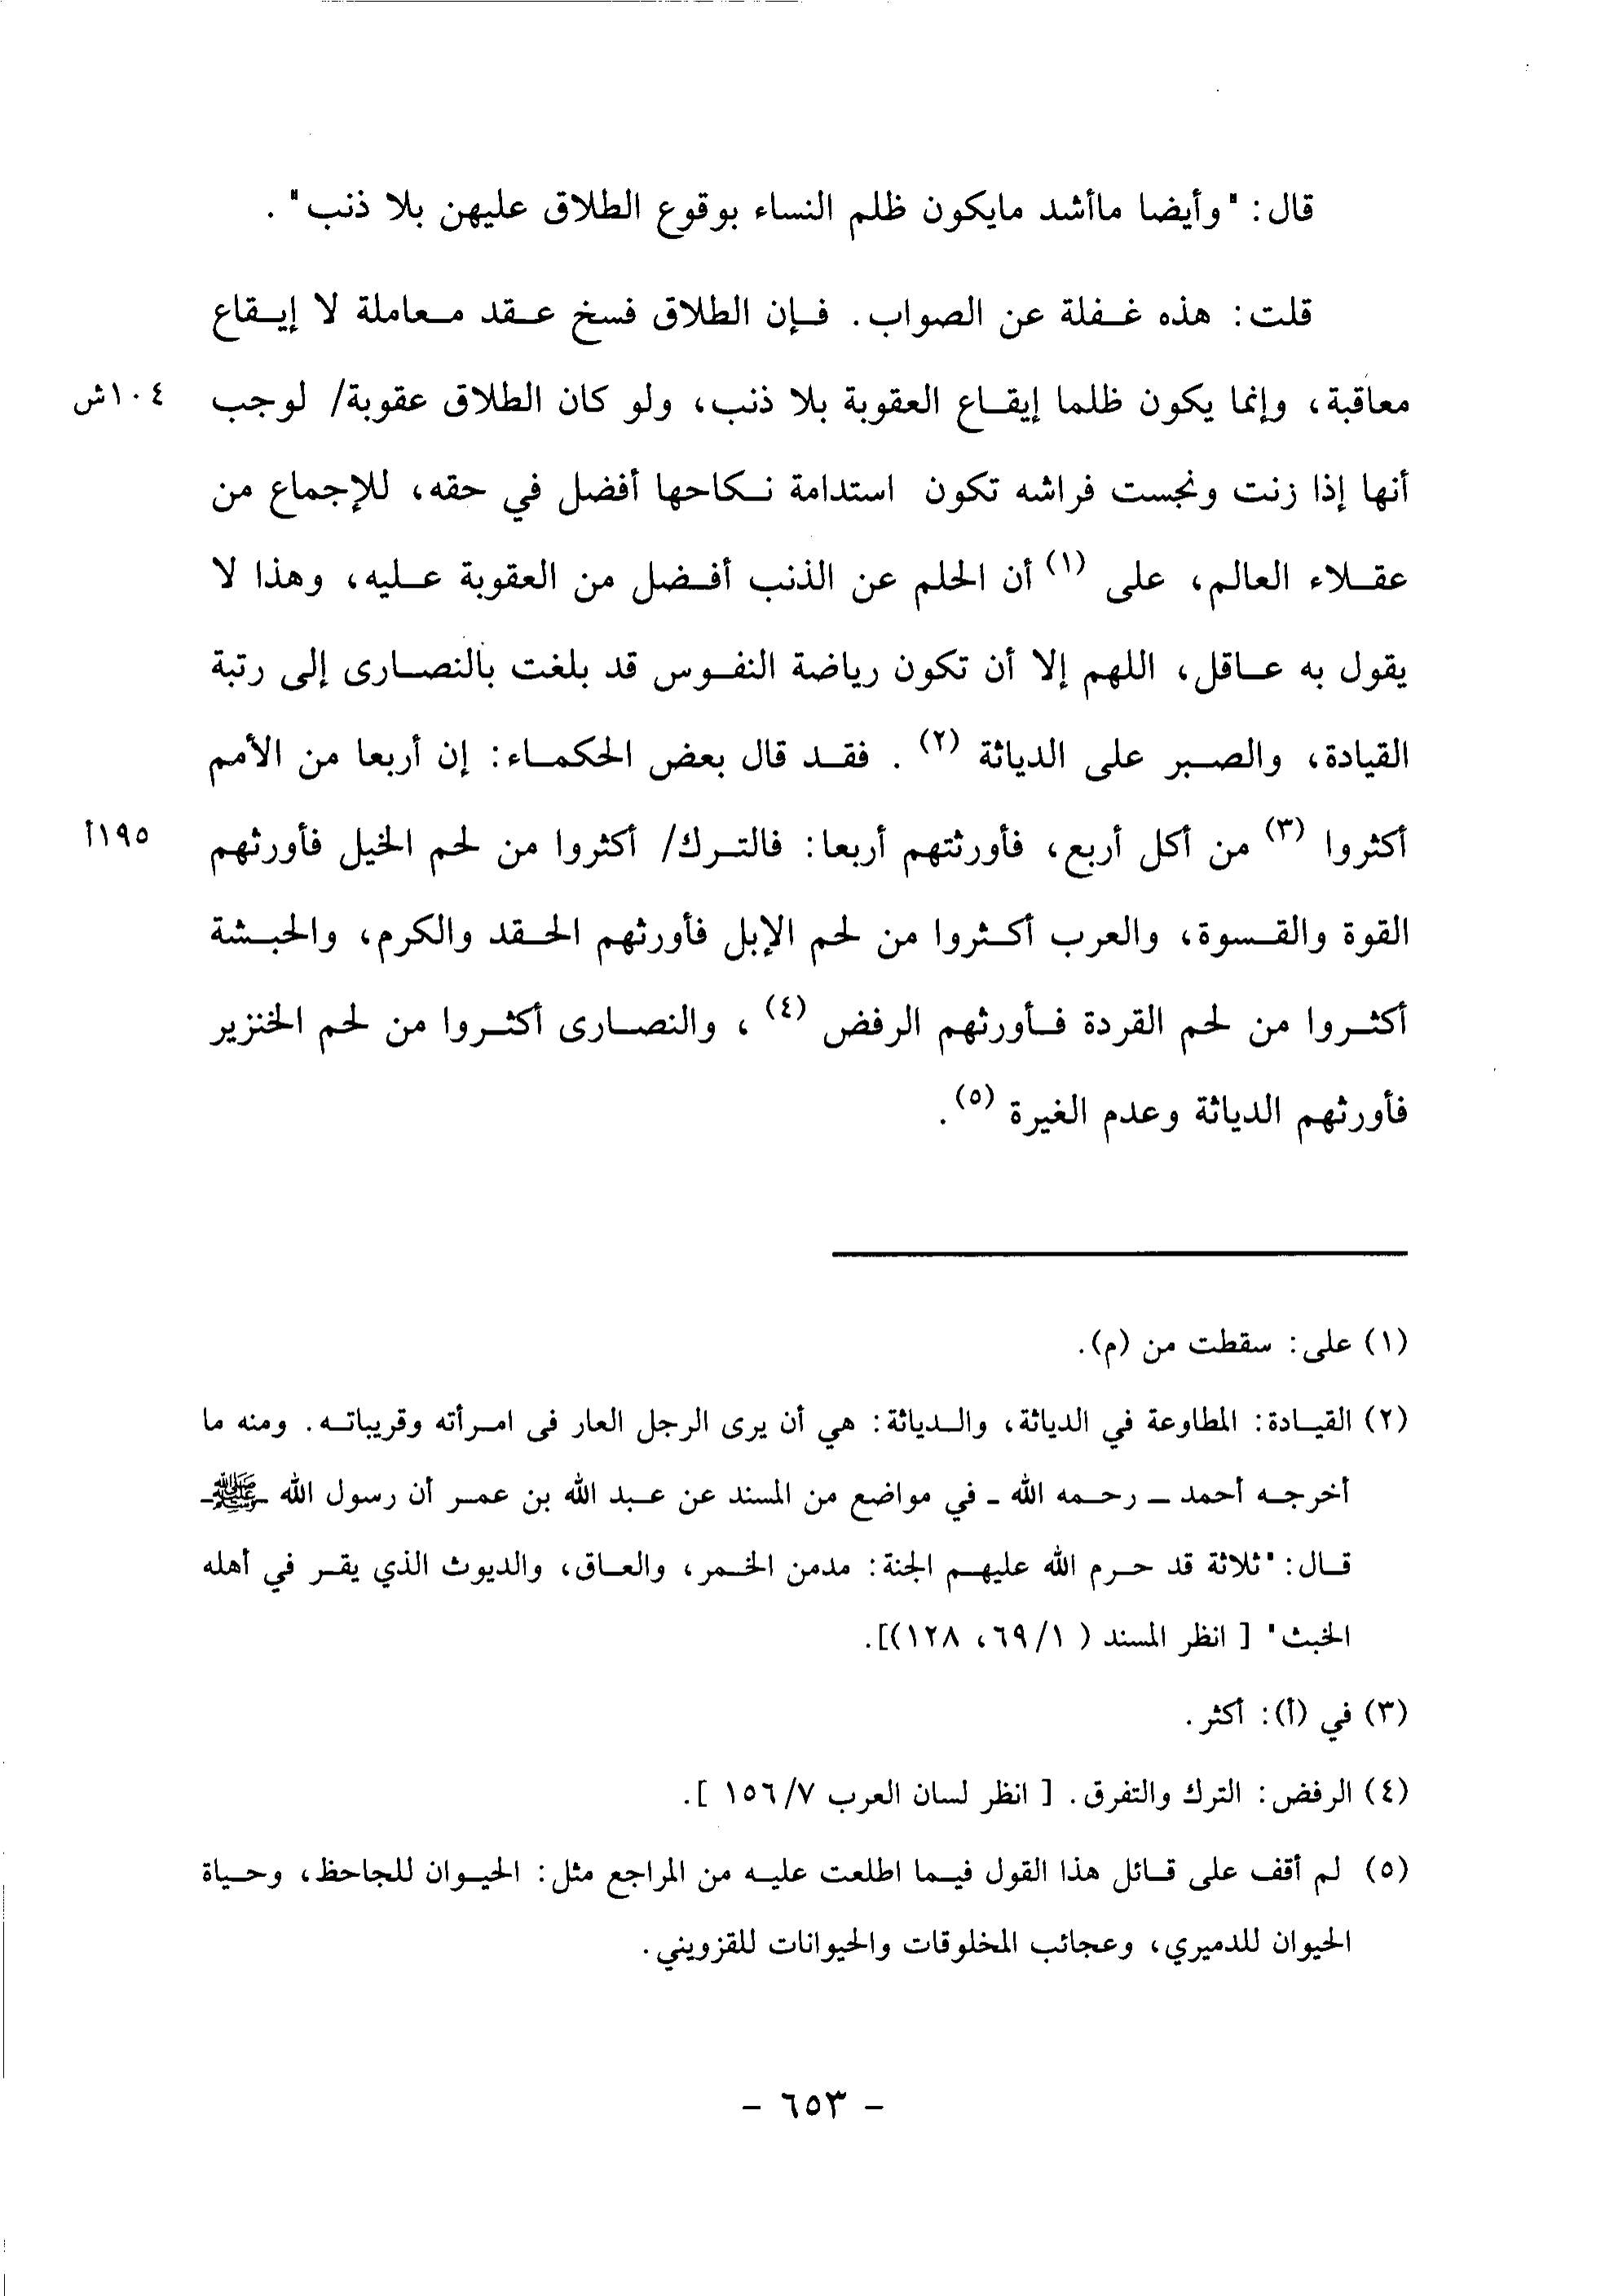 قال: "وأيضا ماأشد مايكون ظلم النساء بوقوع الطلاق عليهن بلا ذنب".
قلت: هذه غفلة عن الصواب. فإن الطلاق فسخ عقد معاملة لا إيقاع
معاقبة، وإنما يكون ظلما إيقاع العقوبة بلا ذنب، ولو كان الطلاق عقوبة/ لوجب ١٠٤ش
أنها إذا زنت ونجست فراشه تكون استدامة نكاحها أفضل في حقه، للإجماع من
عقلاء العالم، على (١) أن الحلم عن الذنب أفضل من العقوبة عليه، وهذا لا
يقول به عاقل، اللهم إلا أن تكون رياضة النفوس قد بلغت بالنصارى إلى رتبة
القيادة، والصبر على الدياثة (٢). فقد قال بعض الحكماء: إن أربعا من الأمم
أكثروا (٣) من أكل أربع، فأورثتهم أربعا: فالترك/ أكثروا من لحم الخيل فأورثهم ١٩٥أ
القوة والقسوة، والعرب أكثروا من لحم الإبل فأورثهم الحقد والكرم، والحبشة
أكثروا من لحم القردة فأورثهم الرفض (٤)، والنصارى أكثروا من لحم الخنزير
فأورثهم الدياثة وعدم الغيرة (٥).
(١) على: سقطت من (م).
(٢) القيادة: المطاوعة في الدياثة، والدياثة: هي أن يرى الرجل العار فى امرأته وقريباته. ومنه ما
أخرجه أحمد - رحمه الله - في مواضع من المسند عن عبد الله بن عمر أن رسول الله -ﷺ-
قال: "ثلاثة قد حرم الله عليهم الجنة: مدمن الخمر، والعاق، والديوث الذي يقر في أهله
الخبث" [ انظر المسند ( ١/ ٦٩، ١٢٨)].
(٣) في (أ): أكثر.
(٤) الرفض: الترك والتفرق. [ انظر لسان العرب ٧/ ١٥٦ ].
(٥) لم أقف على قائل هذا القول فيما اطلعت عليه من المراجع مثل: الحيوان للجاحظ، وحياة
الحيوان للدميري، وعجائب المخلوقات والحيوانات للقزويني.
- ٦٥٣ -